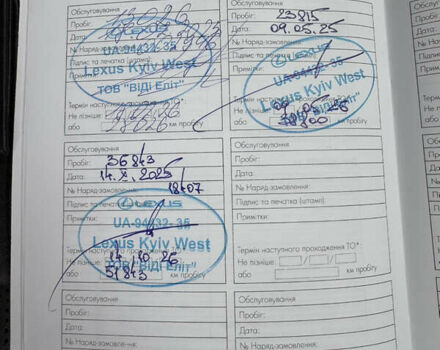 Обслуговування
Пробіг:
Дата:
№ Наряд-Замовлення
Підпис та печатка
Примітки
LEXUS
UA-94432-35
Lexus Kyiv West
ТОВ "ВІДІ Еліт"
Термін наступного
Не пізніше:
або км пробігу
Обслуговування
Пробіг: 23815
Дата: 09.05.25
№ Наряд-Замовлення
Підпис та печатка
Примітки
LEXUS
UA-94432-35
Lexus Kyiv West
ТОВ "ВІДІ Еліт"
Термін наступного
Не пізніше:
або км пробігу
Обслуговування
Пробіг: 36843
Дата: 14.X.2025
№ Наряд-Замовлення 18407
Підпис та печатка
LEXUS
Примітки:
UA-94432-35
Lexus Kyiv West
Термін наступного проходження ТО*:
ТОВ "ВІДІ Еліт"
Не пізніше: 14 10 26
або 51843 км пробігу
Обслуговування
Пробіг:
Дата:
№ Наряд-Замовлення:
Підпис та печатка (штамп):
Примітки:
Термін наступного проходження ТО*:
Не пізніше:
або км пробігу
Обслуговування
Пробіг:
Дата:
№ Наряд-Замовлення:
Обслуговування
Пробіг:
Дата:
№ Наряд-Замовлення: